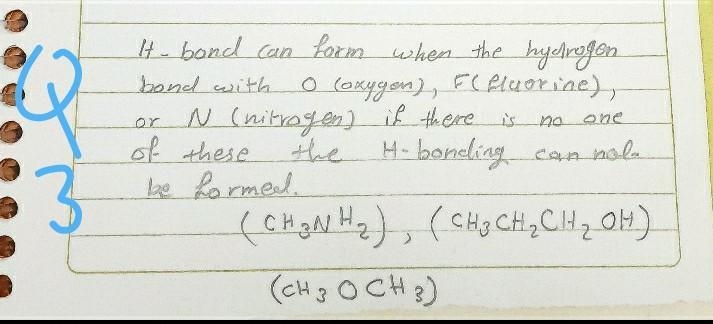 Q3
H-bond can form when the hydrogen
bond with O (oxygen), F(fluorine),
or N (nitrogen) if there is no one
of these the H-bonding can not
be formed.
(CH3NH2), (CH3CH2CH2OH)
(CH3OCH3)